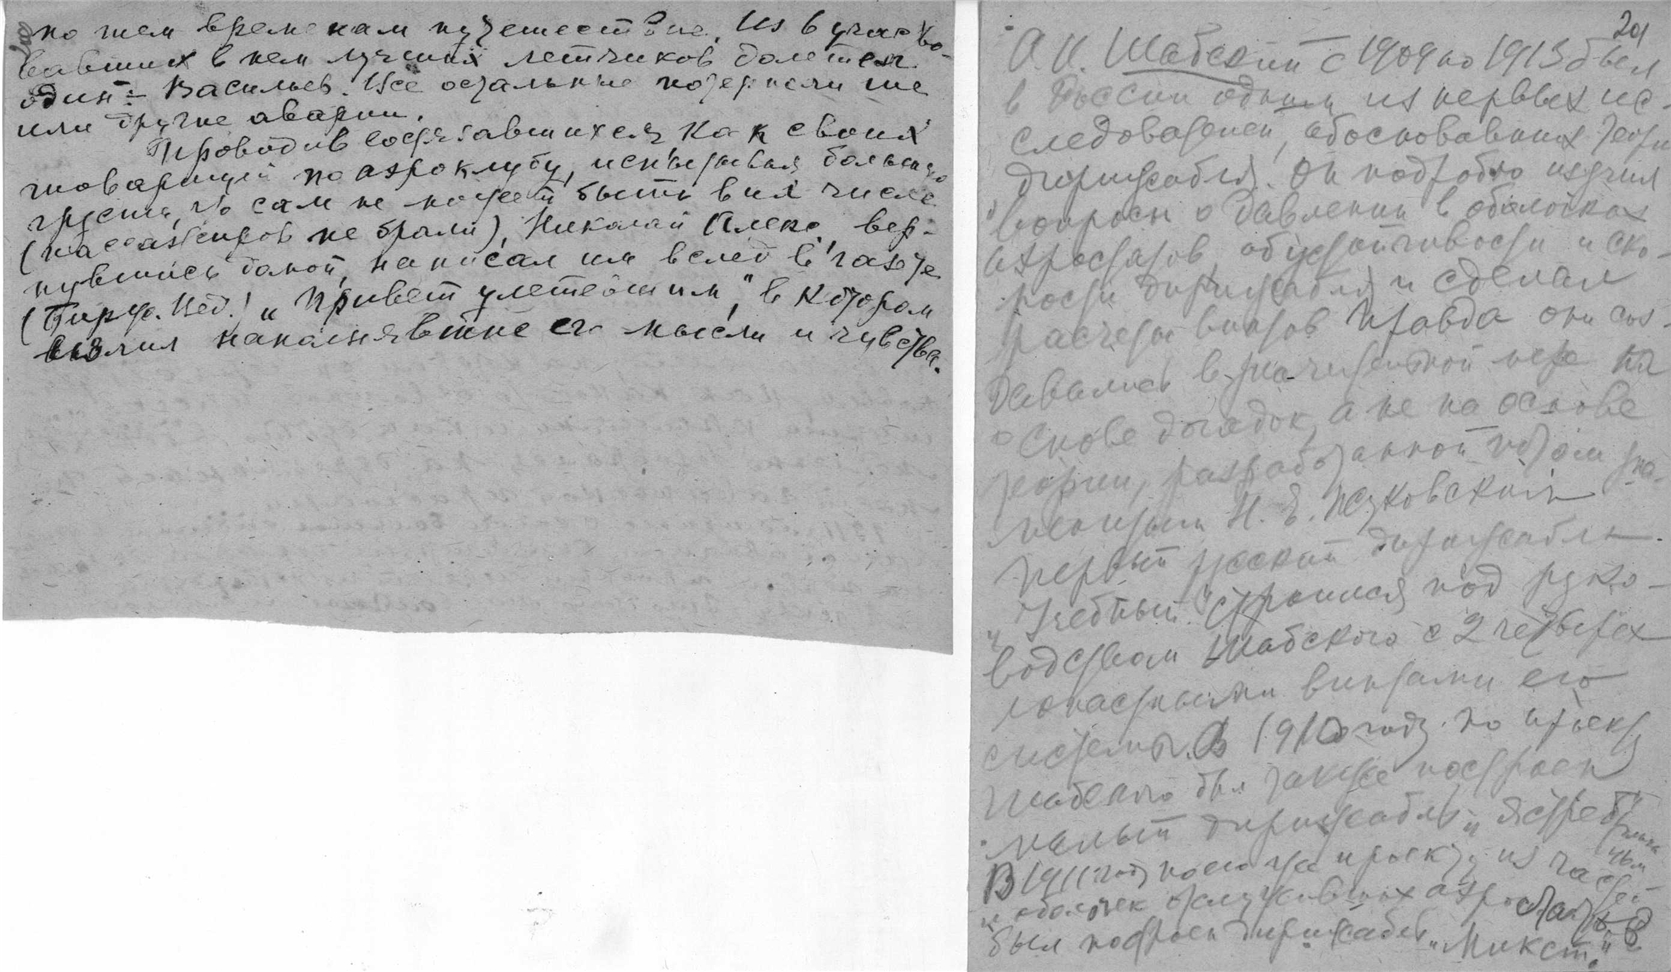 по тем временам путешествие. Из 6 участво-
вавших в нем лучших летчиков долетел
один - Васильев. Все остальные потерпели те
или другие аварии.
Проводив состязавшихся, как своих
товарищей по аэроклубу, испытывая большую
грусть, что сам не может быть в их числе
(пассажиров не брали), Николай Алекс. вер-
нувшись домой, написал им вслед в газете
(Бирж. Вед.) "Привет улетевшим", в котором
излил наполнявшие его мысли и чувства.
201
А.И. Шабский с 1909 по 1913 был
в России одним из первых ис-
следователей, обосновавших теорию
дирижабля. Он подробно изучил
вопросы о давлении в оболочках
аэростатов, об устойчивости и ско-
рости дирижабля и сделал
расчеты винтов. Правда они соз-
давались в значительной мере на
основе догадок, а не на основе
теории, разработанной потом зна-
менитым Н. Е. Жуковским
Первый русский дирижабль
"Учебный" строился под руко-
водством Шабского с 2 четырех
лопастными винтами его
системы. В 1910 году по проекту
Шабского был также построен
малый дирижабль "Ястреб"
В 1911 году по его же проекту из частей
и оболочек отслуживших аэростатов
был построен дирижабль "Микст."